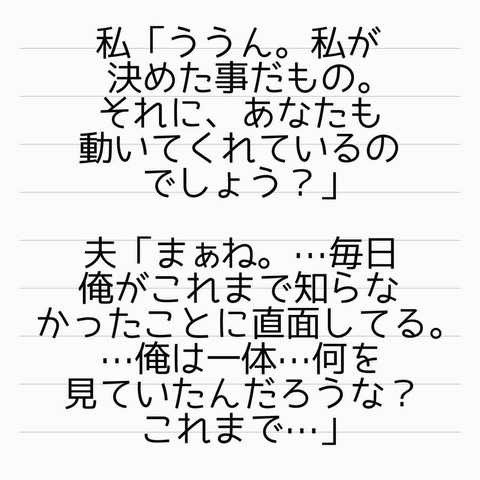 私「ううん。私が
決めた事だもの。
それに、あなたも
動いてくれているの
でしょう？」
夫「まぁね。…毎日
俺がこれまで知らな
かったことに直面してる。
…俺は一体…何を
見ていたんだろうな？
これまで…」